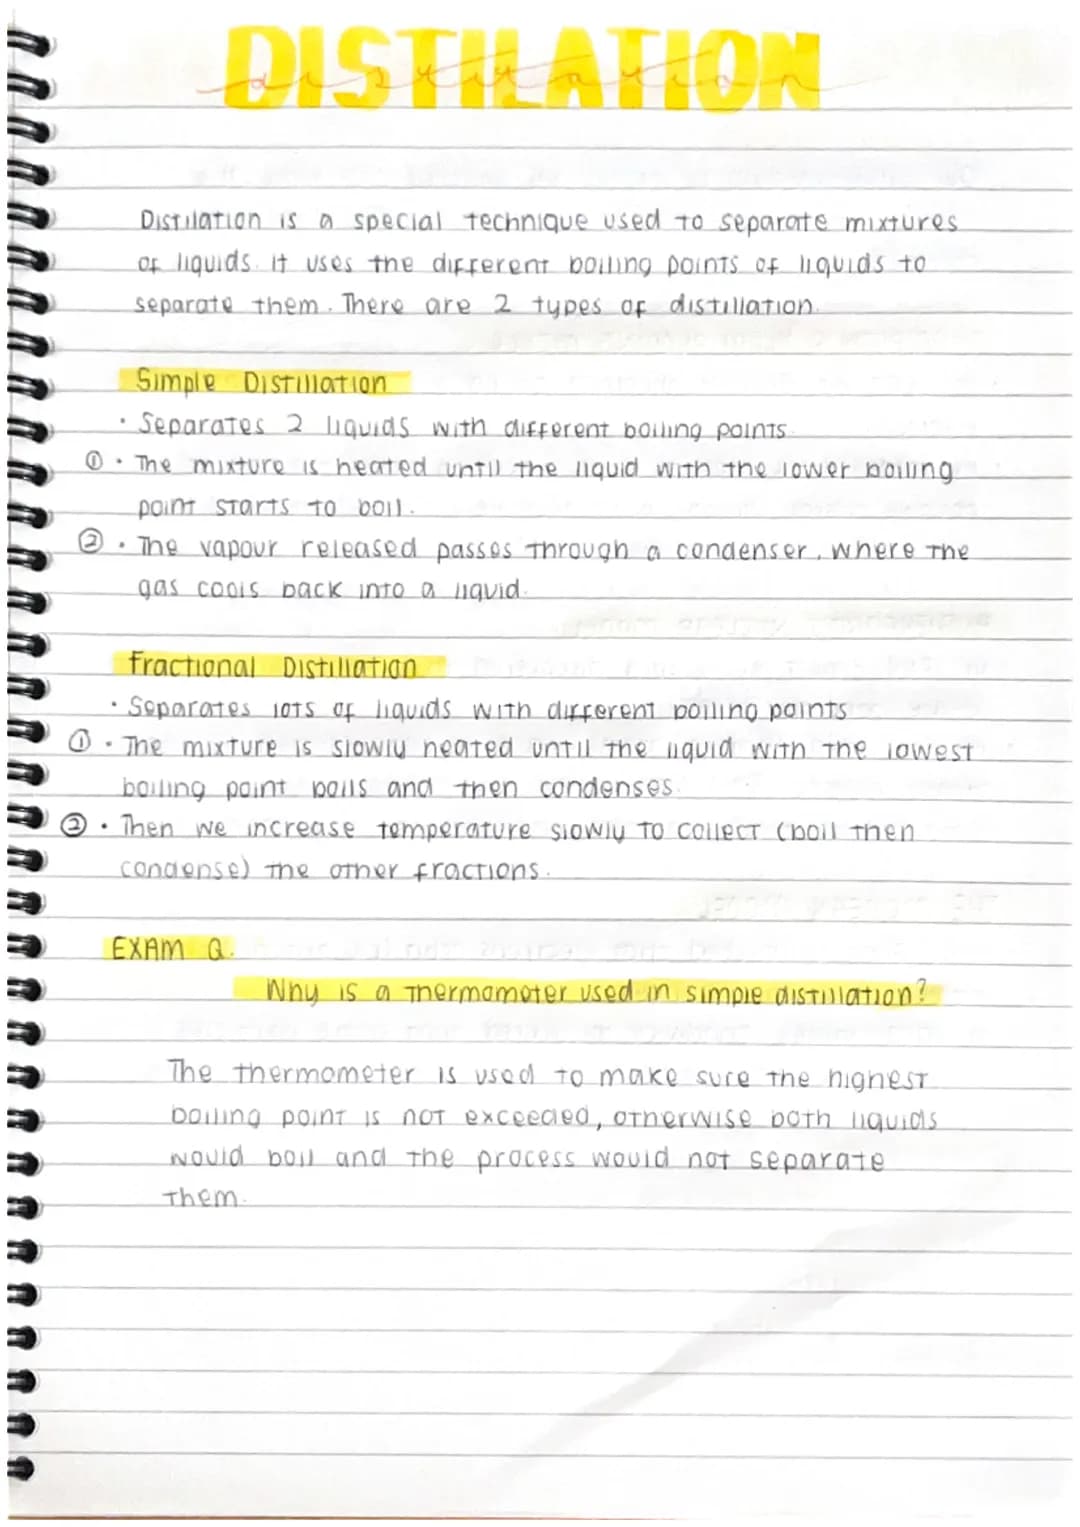 DISTILATION
distilation
Distilation is a special technique used to separate mixtures
of liquids. it uses the different boiling points of liquids to
separate them. There are 2 types of distillation.
Simple Distillation
· Separates 2 liquids with different boiling points.
① · The mixture is heated until the liquid with the lower boiling
point starts to boil.
② · The vapour released passes through a condenser, where the
gas cools back into a liquid.
Fractional Distillation
· Separates lots of liquids with different boiling points
① · The mixture is slowly heated until the liquid with the lowest
boiling point boils and then condenses.
② · Then we increase temperature slowly to collect (boil then
condense) the other fractions.
EXAM Q.
Why is a thermometer used in simple distillation?
The thermometer is used to make sure the highest
boiling point is not exceeded, otherwise both liquids
would boil and the process would not separate
them.